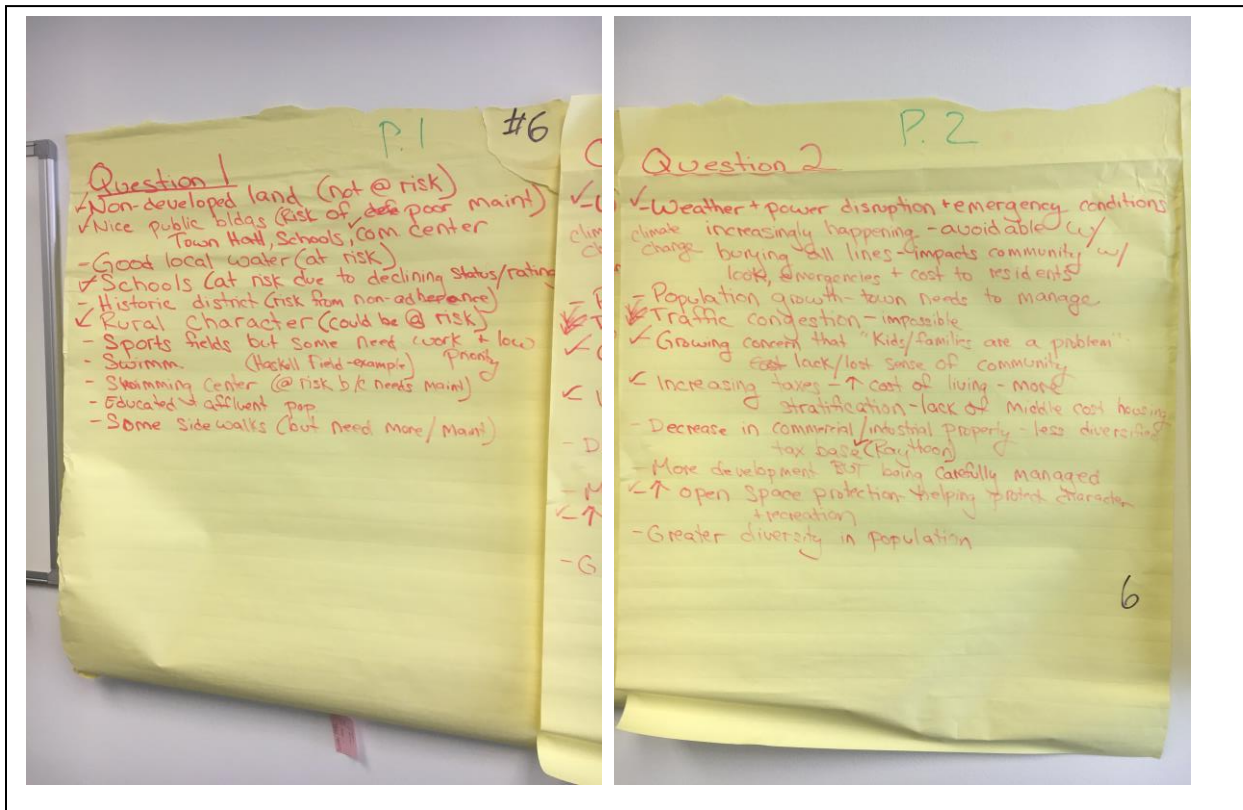 P.1
#6
Question 1
✓ Non-developed land (not @ risk)
✓ Nice public bldgs (Risk of poor maint)
Town Hall, Schools, ✓ com. center
- Good local water (at risk)
✓ Schools (at risk due to declining status/rating)
- Historic district (risk from non-adherence)
✓ Rural Character (could be @ risk)
- Sports fields but some need work + low
- Swimm. (Haskell Field-example) priority
- Swimming Center (@ risk b/c needs maint)
- Educated + affluent pop
- Some sidewalks (but need more/maint)
P. 2
Question 2
✓ - Weather + power disruption + emergency conditions
climate increasingly happening - avoidable w/
change burying all lines - impacts community w/
look, emergencies + cost to residents
- Population growth - town needs to manage
Traffic congestion - impossible
✓ - Growing concern that "Kids/families are a problem"
lack/lost sense of community
✓ Increasing taxes - ↑ cost of living - more
stratification - lack of middle cost housing
- Decrease in commercial/industrial property - less diversified
tax base ✓ (Raytheon)
- More development BUT being carefully managed
✓ - ↑ open space protection - helping protect character
+ recreation
- Greater diversity in population
6